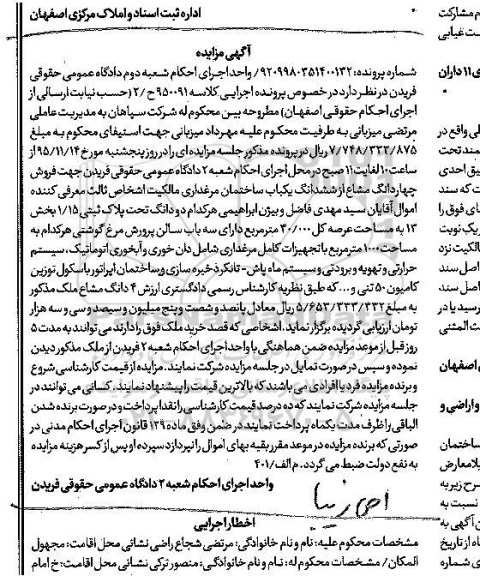 اداره ثبت اسناد و املاک مرکزی اصفهان
آگهی مزایده
شماره پرونده: ۹۲۰۹۹۸۰۳۵۱۴۰۰۱۳۲/ واحد اجرای احکام شعبه دوم دادگاه عمومی حقوقی
فریدن در نظر دارد در خصوص پرونده اجرایی کلاسه ۹۵۰۰۹۱ ح/۲ (حسب نیابت ارسالی از
اجرای احکام حقوقی اصفهان) مطروحه بین محکوم له شرکت سپاهان به مدیریت عاملی
مرتضی میزبانی به طرفیت محکوم علیه مهرداد میزبانی جهت استیفای محکوم به مبلغ
۷/۷۴۸/۳۳۲/۸۷۵ ریال در پرونده مذکور جلسه مزایده ای را در روز پنجشنبه مورخ ۹۵/۱۱/۱۴ از
ساعت ۱۰ لغایت ۱۱ صبح در محل اجرای احکام شعبه ۲ دادگاه عمومی حقوقی فریدن جهت فروش
چهار دانگ مشاع از ششدانگ یکباب ساختمان مرغداری مالکیت اشخاص ثالث معرفی کننده
اموال آقایان سید مهدی فاضل و بیژن ابراهیمی هر کدام دو دانگ تحت پلاک ثبتی ۱/۱۵ بخش
۱۳ به مساحت عرصه کل ۳۰/۰۰۰ مترمربع دارای سه باب سالن پرورش مرغ گوشتی هرکدام به
مساحت ۱۰۰۰ مترمربع با تجهیزات کامل مرغداری شامل دان خوری و آبخوری اتوماتیک، سیستم
حرارتی و تهویه و برودتی و سیستم ماه پاش- تانکر ذخیره سازی و ساختمان اپراتور باسکول توزین
کامیون ۵۰ تنی و... که طبق نظریه کارشناس رسمی دادگستری ارزش ۴ دانگ مشاع ملک مذکور
به مبلغ ۵/۶۵۳/۳۳۳/۳۳۲ ریال معادل پانصد و شصت و پنج میلیون و سیصد و سی و سه هزار
تومان ارزیابی گردیده برگزار نماید. اشخاصی که قصد خرید ملک فوق را دارند می توانند به مدت ۵
روز قبل از موعد مزایده ضمن هماهنگی با واحد اجرای احکام شعبه ۲ فریدن از ملک مذکور دیدن
نموده و سپس در صورت تمایل در جلسه مزایده شرکت نمایند. مزایده از قیمت کارشناسی شروع
و برنده مزایده فرد یا افرادی می باشند که بالاترین قیمت را پیشنهاد نمایند. کسانی می توانند در
جلسه مزایده شرکت نمایند که ده درصد قیمت کارشناسی را نقدا پرداخت و در صورت برنده شدن
الباقی را ظرف مدت یکماه پرداخت نمایند در ضمن وفق ماده ۱۲۹ قانون اجرای احکام مدنی در
صورتی که برنده مزایده در موعد مقرر بقیه بهای اموال را نپردازد سپرده او پس از کسر هزینه مزایده
به نفع دولت ضبط می گردد. م الف/۴۰۱
واحد اجرای احکام شعبه ۲ دادگاه عمومی حقوقی فریدن
اخطار اجرایی
مشخصات محکوم علیه: نام و نام خانوادگی: مرتضی شجاع راضی نشانی محل اقامت: مجهول
المکان/ مشخصات محکوم له: نام و نام خانوادگی: منصور ترکی نشانی محل اقامت: خ امام
م مشارکت
ت غیابی
ی ۱۱ داران
لی واقع در
مند تحت
یق احدی
ت که سند
ای فوق را
ریک نوبت
مالکیت نزد
اصل سند
رسید یا در
اصل سند
ت المثنی
ی اصفهان
و اراضی و
ساختمان
بلامعارض
رح زیر به
نسبت به
ن آگهی به
اه از تاریخ
ی شماره